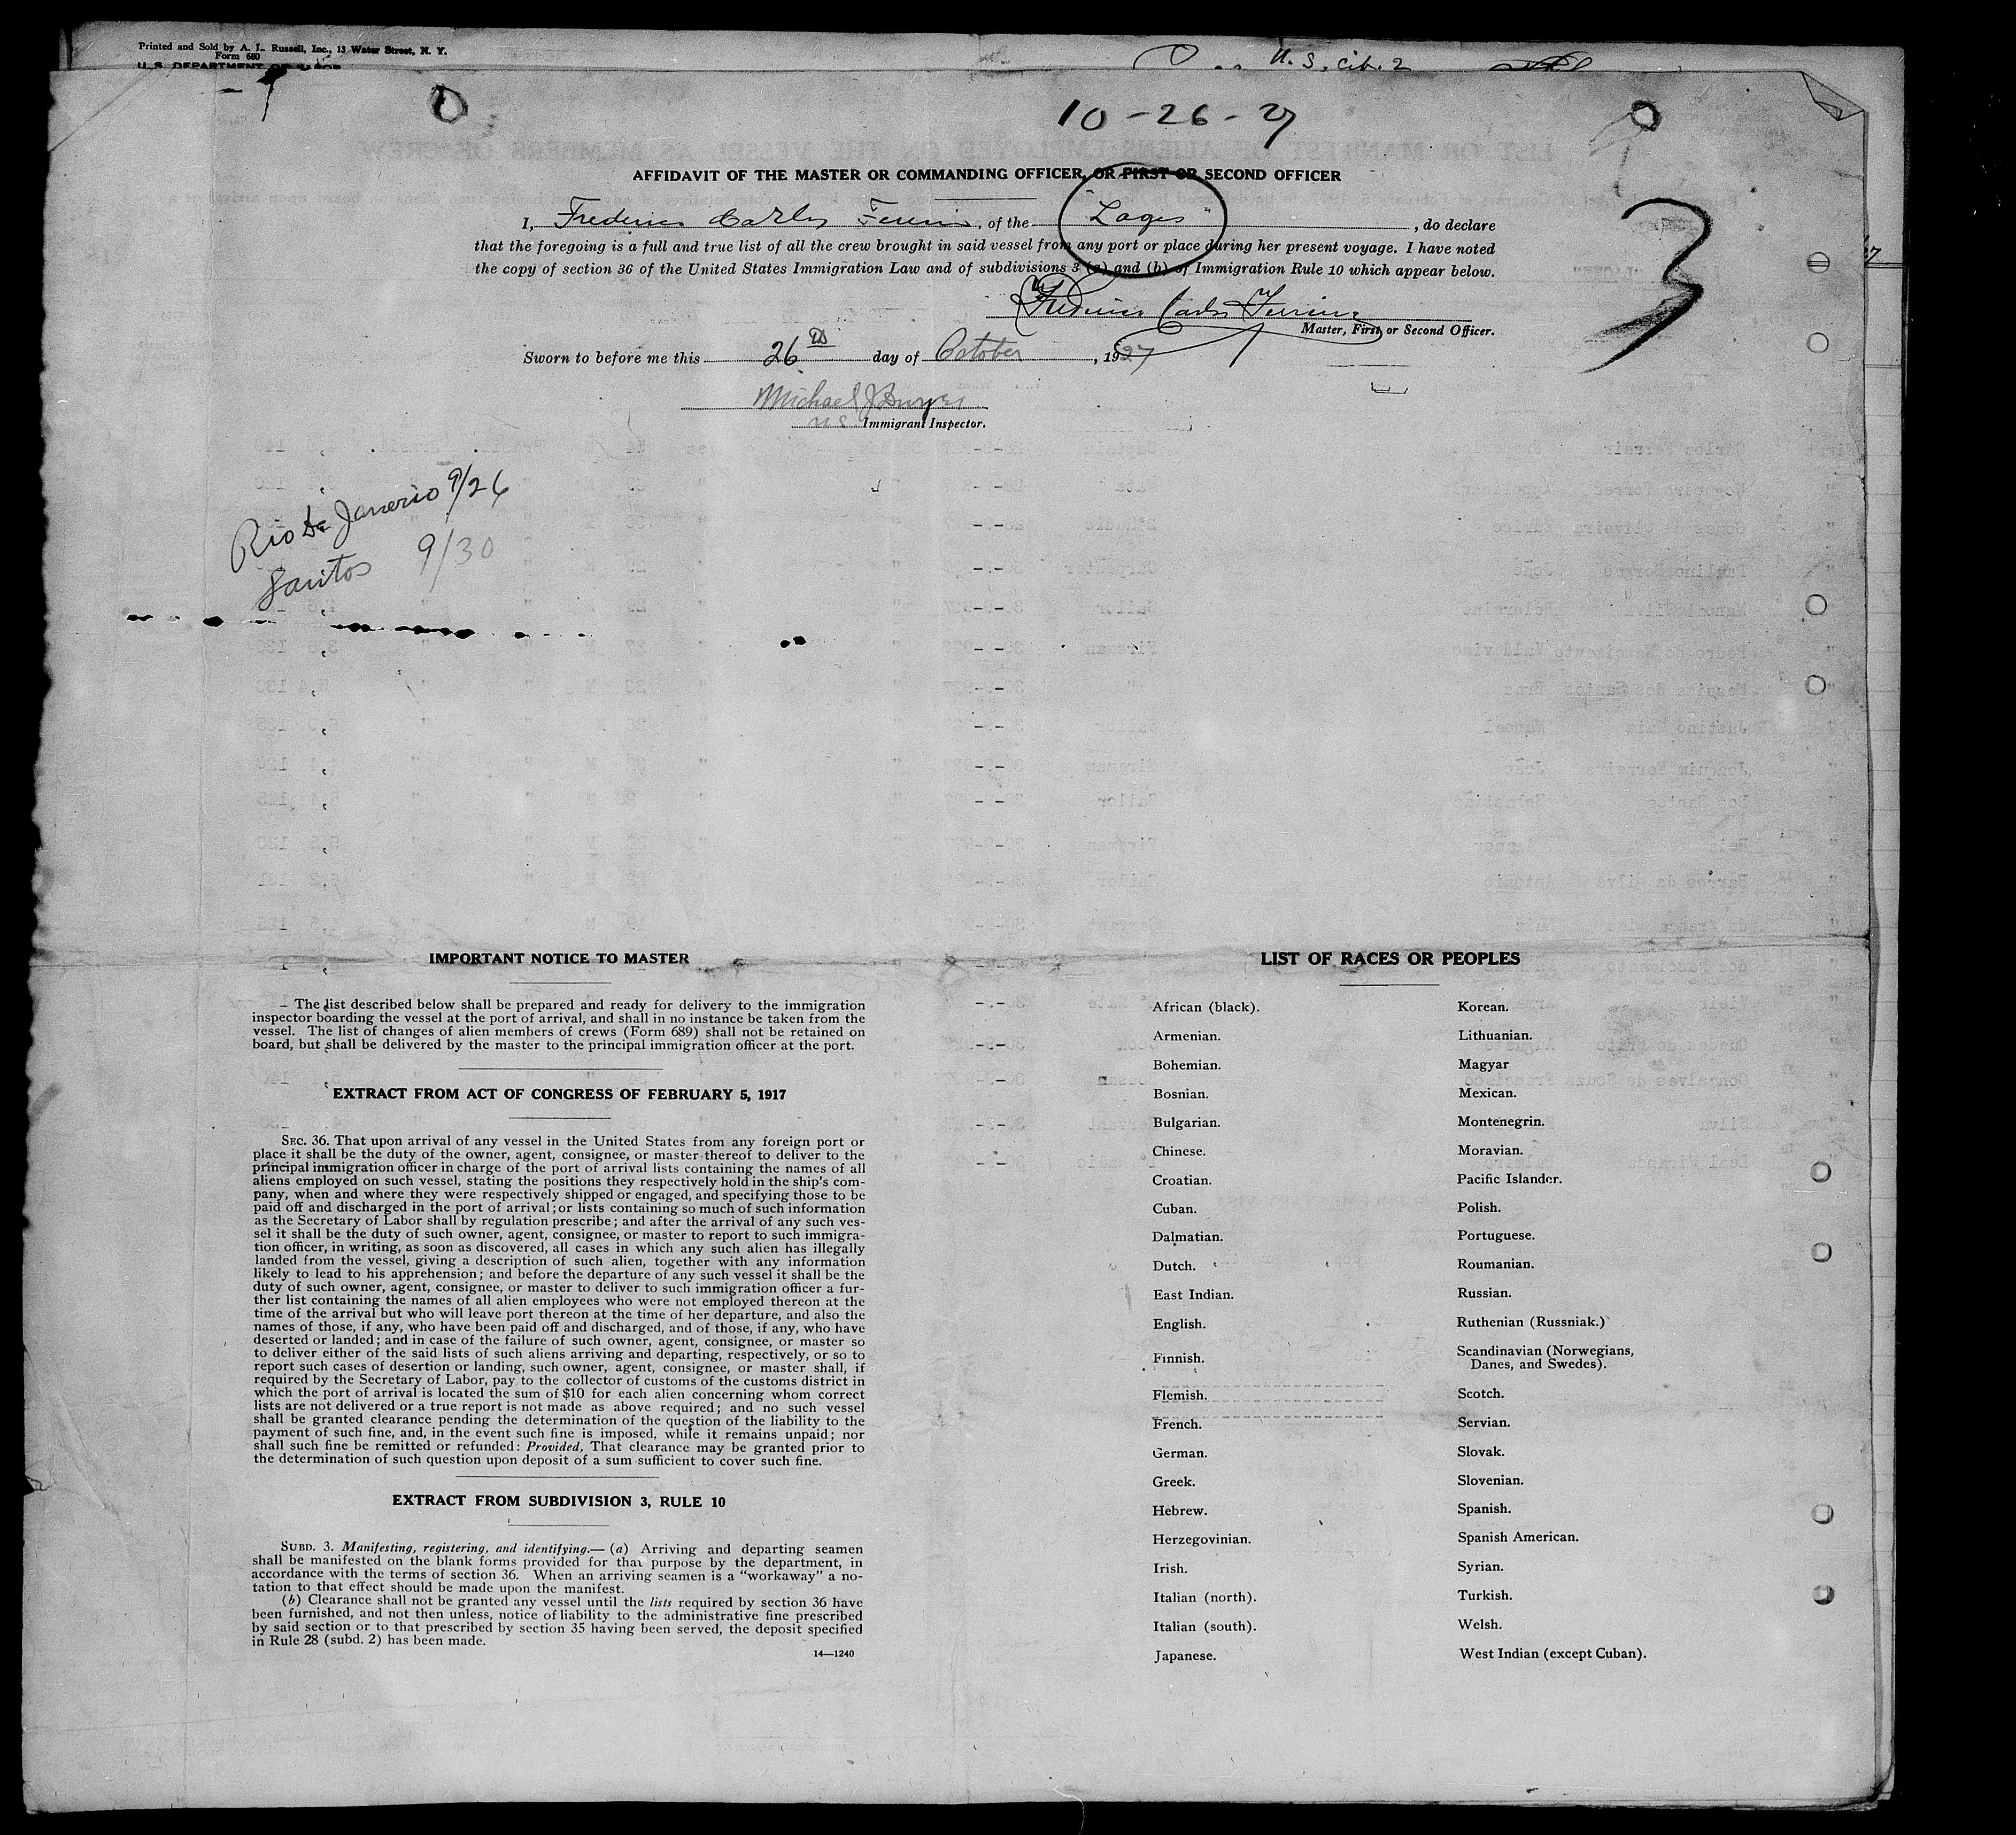 Printed and Sold by A. L. Russell, Inc., 13 Water Street, N. Y.
Form 680
U. S. DEPARTMENT OF LABOR
U. S. Cit. 2
10-26-27
AFFIDAVIT OF THE MASTER OR COMMANDING OFFICER, OR FIRST OR SECOND OFFICER
I, Frederico Carlos, of the "Lages", do declare
that the foregoing is a full and true list of all the crew brought in said vessel from any port or place during her present voyage. I have noted
the copy of section 36 of the United States Immigration Law and of subdivisions 3 (a) and (b) of Immigration Rule 10 which appear below.
3
Frederico Carlos
Master, First or Second Officer.
Sworn to before me this 26 day of October, 1927
Michael J
U S Immigrant Inspector.
Rio De Janerio 9/26
Santos 9/30
IMPORTANT NOTICE TO MASTER
The list described below shall be prepared and ready for delivery to the immigration
inspector boarding the vessel at the port of arrival, and shall in no instance be taken from the
vessel. The list of changes of alien members of crews (Form 689) shall not be retained on
board, but shall be delivered by the master to the principal immigration officer at the port.
EXTRACT FROM ACT OF CONGRESS OF FEBRUARY 5, 1917
SEC. 36. That upon arrival of any vessel in the United States from any foreign port or
place it shall be the duty of the owner, agent, consignee, or master thereof to deliver to the
principal immigration officer in charge of the port of arrival lists containing the names of all
aliens employed on such vessel, stating the positions they respectively hold in the ship's com-
pany, when and where they were respectively shipped or engaged, and specifying those to be
paid off and discharged in the port of arrival; or lists containing so much of such information
as the Secretary of Labor shall by regulation prescribe; and after the arrival of any such ves-
sel it shall be the duty of such owner, agent, consignee, or master to report to such immigra-
tion officer, in writing, as soon as discovered, all cases in which any such alien has illegally
landed from the vessel, giving a description of such alien, together with any information
likely to lead to his apprehension; and before the departure of any such vessel it shall be the
duty of such owner, agent, consignee, or master to deliver to such immigration officer a fur-
ther list containing the names of all alien employees who were not employed thereon at the
time of the arrival but who will leave port thereon at the time of her departure, and also the
names of those, if any, who have been paid off and discharged, and of those, if any, who have
deserted or landed; and in case of the failure of such owner, agent, consignee, or master so
to deliver either of the said lists of such aliens arriving and departing, respectively, or so to
report such cases of desertion or landing, such owner, agent, consignee, or master shall, if
required by the Secretary of Labor, pay to the collector of customs of the customs district in
which the port of arrival is located the sum of $10 for each alien concerning whom correct
lists are not delivered or a true report is not made as above required; and no such vessel
shall be granted clearance pending the determination of the question of the liability to the
payment of such fine, and, in the event such fine is imposed, while it remains unpaid; nor
shall such fine be remitted or refunded: Provided, That clearance may be granted prior to
the determination of such question upon deposit of a sum sufficient to cover such fine.
EXTRACT FROM SUBDIVISION 3, RULE 10
SUBD. 3. Manifesting, registering, and identifying.—(a) Arriving and departing seamen
shall be manifested on the blank forms provided for that purpose by the department, in
accordance with the terms of section 36. When an arriving seamen is a "workaway" a no-
tation to that effect should be made upon the manifest.
(b) Clearance shall not be granted any vessel until the lists required by section 36 have
been furnished, and not then unless, notice of liability to the administrative fine prescribed
by said section or to that prescribed by section 35 having been served, the deposit specified
in Rule 28 (subd. 2) has been made.
14—1240
LIST OF RACES OR PEOPLES
African (black).
Armenian.
Bohemian.
Bosnian.
Bulgarian.
Chinese.
Croatian.
Cuban.
Dalmatian.
Dutch.
East Indian.
English.
Finnish.
Flemish.
French.
German.
Greek.
Hebrew.
Herzegovinian.
Irish.
Italian (north).
Italian (south).
Japanese.
Korean.
Lithuanian.
Magyar
Mexican.
Montenegrin.
Moravian.
Pacific Islander.
Polish.
Portuguese.
Roumanian.
Russian.
Ruthenian (Russniak.)
Scandinavian (Norwegians,
Danes, and Swedes).
Scotch.
Servian.
Slovak.
Slovenian.
Spanish.
Spanish American.
Syrian.
Turkish.
Welsh.
West Indian (except Cuban).